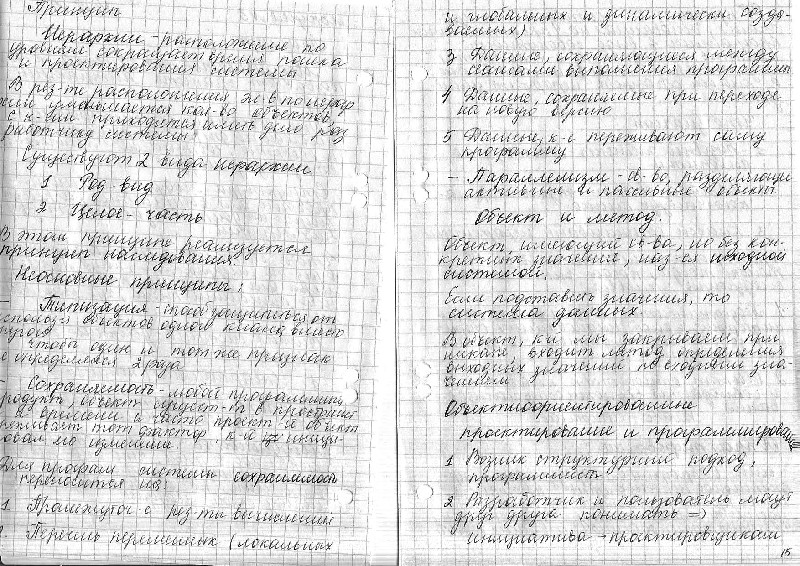 Принцип
Иерархии - расположение по
уровням сокращает время поиска
и проектирования системы
В рез-те расположения эл. в по иерар
хии уменьшается кол-во объектов,
с к-ми приходится иметь дело раз
работчику системы
Существуют 2 вида иерархии
1 Род вид
2 Целое - часть
В этом принципе реализуется
принцип наследования
Неосновные принципы:
- Типизация - способ защититься от
использ-я объектов одного класса вместо
другого
чтобы один и тот же признак
не определялся 2 раза
- Сохраняемость - любой программный
продукт, объект существ-т в пространст
и времени и часто проект-е объект
переживает тот фактор, к-й иници-
ровал его изменение
Для програм системы сохраняемость
переносится на:
1. Промежуточ-е рез-ты вычислений
2. Перечень переменных (локальных
и глобальных и динамически созда-
ваемых)
3 Данные, сохраняющиеся между
сеансами выполнения программы
4 Данные, сохраняемые при переходе
на новую версию
5 Данные, к-е переживают саму
программу
- Параллелизм - св-во, разделяющее
активные и пассивные объекты
Объект и метод.
Объект, имеющий св-ва, но без кон-
кретных значений, наз-ся исходной
системой.
Если подставить значения, то
система данных
В объект, к-й мы закрываем при
входит метод определения
выходных значений по входным зна-
чениям
Объектноориентированные
проектирование и программирование
1 Возник структурный подход,
программист
2 Разработчик и пользователь могут
друг друга понимать =>
инициатива → проектировщикам
15